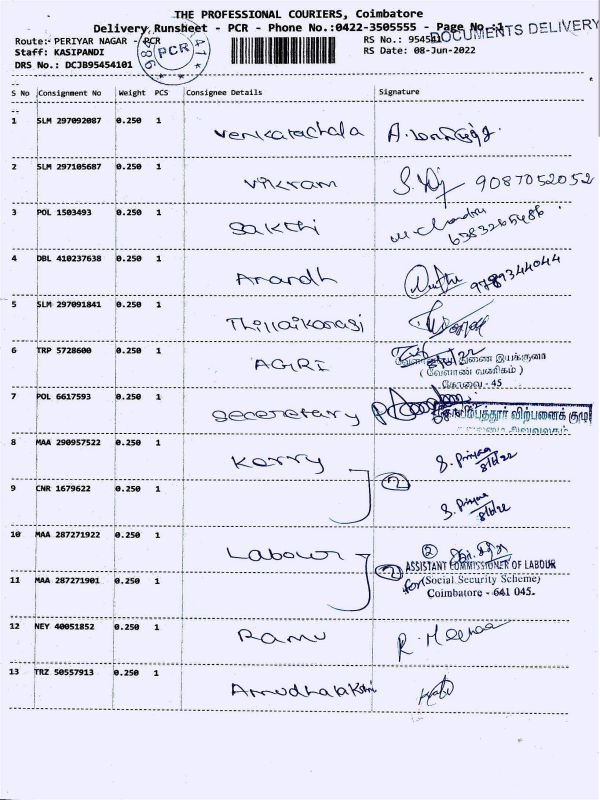 THE PROFESSIONAL COURIERS, Coimbatore
Delivery Runsheet - PCR - Phone No.:0422-3505555 - Page No.:1
DOCUMENTS DELIVERY
Route: PERIYAR NAGAR - PCR
RS No.: 954541
Staff: KASIPANDI
RS Date: 08-Jun-2022
DRS No.: DCJB95454101
PCR
S No Consignment No Weight PCS Consignee Details Signature
1 SLM 297092087 0.250 1 Venkatachala
2 SLM 297105687 0.250 1 Vikram 9087052052
3 POL 1503493 0.250 1 Sakthi M. Chandru
6383265486
4 DBL 410237638 0.250 1 Anandh 9789344044
5 SLM 297091841 0.250 1 Thillaikarasi
6 TRP 5728600 0.250 1 AGRI துணை இயக்குனர்
( வேளாண் வணிகம் )
கோவை - 45
7 POL 6617593 0.250 1 Secretary விற்பனைக் குழு
8 MAA 290957522 0.250 1 Kerry S. Priyaa
8/6/22
9 CNR 1679622 0.250 1 2 S. Priyaa
8/6/22
10 MAA 287271922 0.250 1 Labour 2
ASSISTANT COMMISSIONER OF LABOUR
11 MAA 287271901 0.250 1 2 for (Social Security Scheme)
Coimbatore - 641 045.
12 NEY 40051852 0.250 1 Ramu R. Meenaa
13 TRZ 50557913 0.250 1 Amudhalakshmi